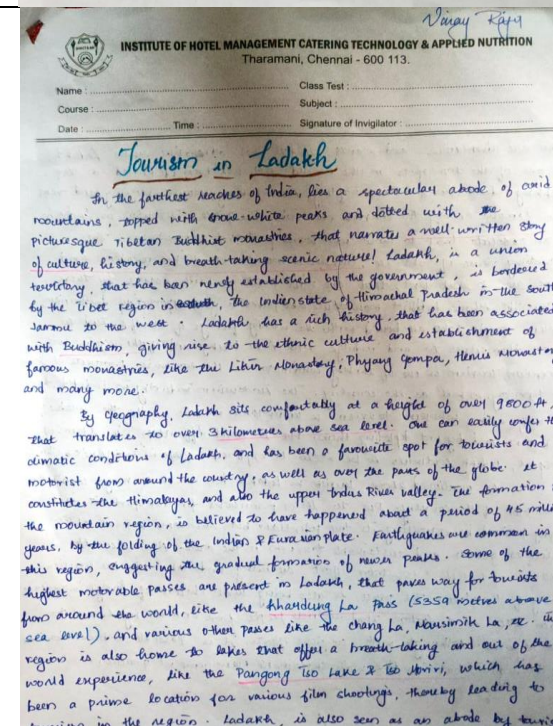 Vinay Raju
INSTITUTE OF HOTEL MANAGEMENT CATERING TECHNOLOGY & APPLIED NUTRITION
Tharamani, Chennai - 600 113.
Name : Class Test :
Course : Subject :
Date : Time : Signature of Invigilator :
Tourism in Ladakh
In the farthest reaches of India, lies a spectacular abode, of arid
mountains, topped with snow-white peaks and dotted with the
picturesque Tibetan Buddhist monastries, that narrates a well-written story
of culture, history, and breath-taking scenic nature! Ladakh, is a union
territory, that has been newly established by the government, is bordered
by the Tibet region in, the Indian state of Himachal Pradesh in the south
Jammu to the west. Ladakh has a rich history, that has been associated
with Buddhism, giving rise to the ethnic culture and establishment of
famous monastries, like the Likir Monastery, Phyang Gompa, Hemis
and many more.
By Geography, Ladakh sits comfortably at a height of over 9800 ft,
that translates to over 3 kilometres above sea level. One can easily confer
climatic conditions of Ladakh, and has been a favourite spot for tourists and
motorist from around the country, as well as over the parts of the globe. It
constitutes the Himalayas, and also the upper Indus River valley. The formation
the mountain region, is believed to have happened about a period of 45
years, by the folding of the Indian & Eurasian plate. Earthquakes are common in
this region, suggesting the gradual formation of newer peaks. Some of the
highest motorable passes are present in Ladakh, that paves way for tourists
from around the world, like the Khardung La Pass (5359 metres above
sea level), and various other passes like the Chang La, Marsimik La, etc.
region is also home to lakes that offer a breath-taking and out of the
world experience, like the Pangong Tso Lake & Tso Moriri, which has
been a prime location for various film shootings, thereby leading to
in the region. Ladakh, is also seen as an abode by